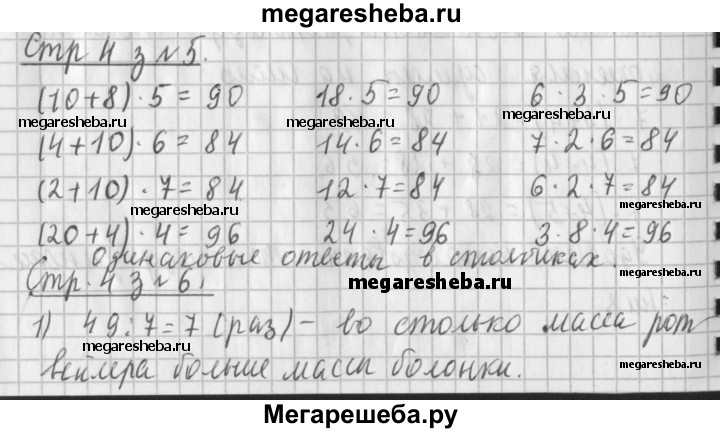 megaresheba.ru
Стр 4 з №5.
(10+8)·5=90 18·5=90 6·3·5=90
megaresheba.ru megaresheba.ru megaresheba.ru
(4+10)·6=84 14·6=84 7·2·6=84
(2+10)·7=84 12·7=84 6·2·7=84
megaresheba.ru megaresheba.ru
(20+4)·4=96 24·4=96 3·8·4=96
одинаковые ответы в столбиках.
megaresheba.ru
Стр. 4 з №6.
megaresheba.ru
1) 49:7=7 (раз) – во столько масса рот
megaresheba.ru megaresheba.ru
вейлера больше массы болонки.
Мегарешеба.ру